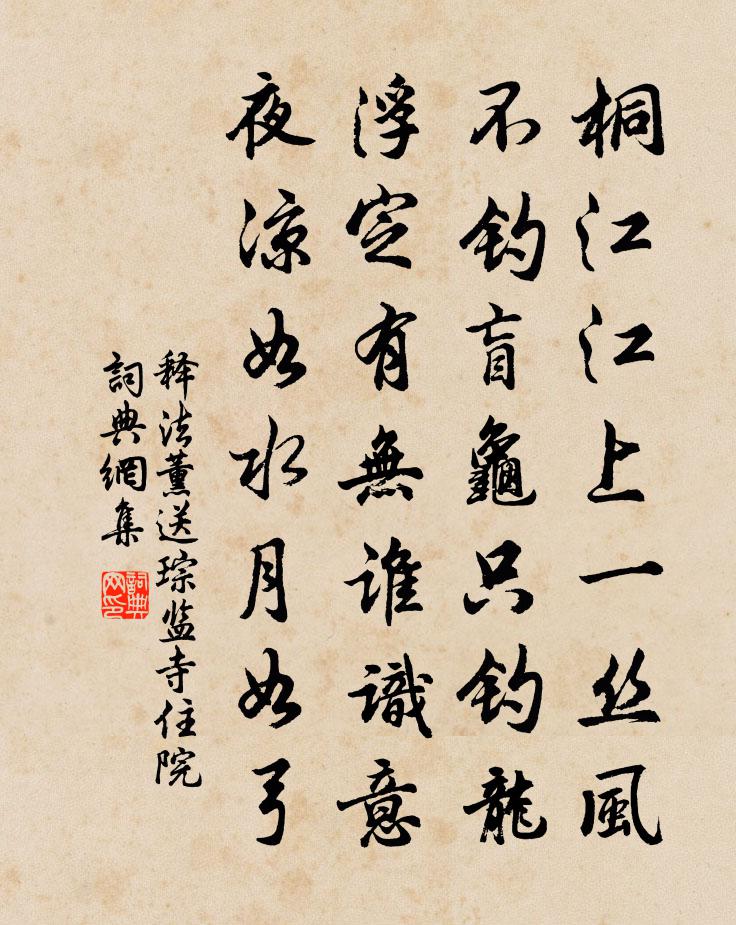 桐江江上一丝風
不钓盲龜只钓龍
浮定有無誰識意
夜凉如水月如弓
释法薰送琮监寺住院
詞典網集
詞典网印